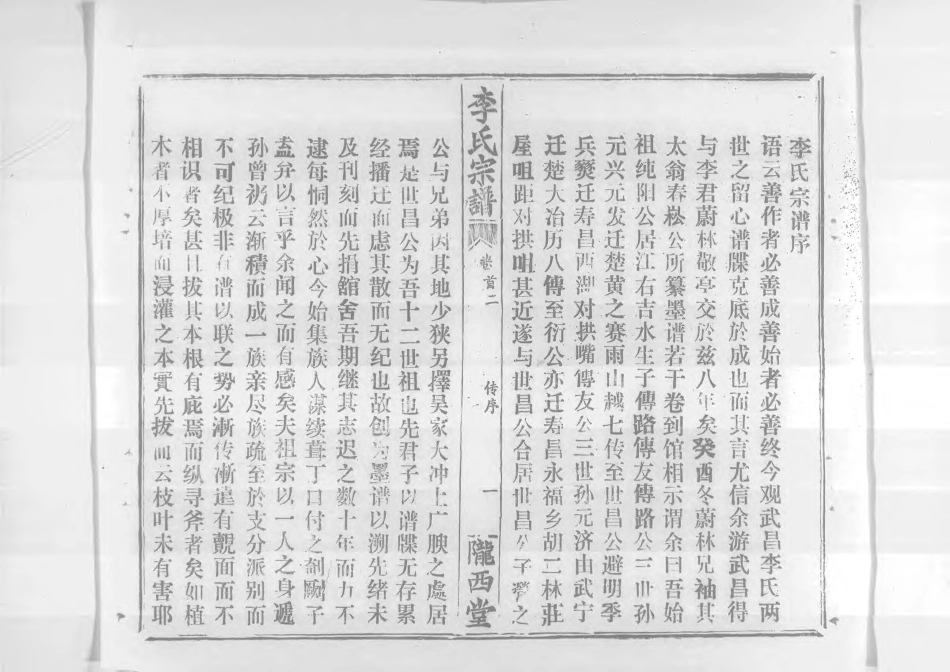 李氏宗谱序
语云善作者必善成善始者必善终今观武昌李氏两
世之留心谱牒克底於成也而其言尤信余游武昌得
与李君蔚林敬亭交於兹八年矣癸酉冬蔚林兄袖其
太翁春松公所纂墨谱若干卷到馆相示谓余曰吾始
祖纯阳公居江右吉水生子傳路傳友傳路公三世孙
元兴元发迁楚黄之赛雨山越七传至世昌公避明季
兵燹迁寿昌西湖对拱嘴傳友公三世孙元济由武宁
迁楚大冶历八傳至衍公亦迁寿昌永福乡胡二林莊
屋咀距对拱咀甚近遂与世昌公合居世昌公子之
李氏宗譜
卷首二
传序
一
隴西堂
公与兄弟因其地少狭另擇吴家大冲上广腴之處居
焉是世昌公为吾十二世祖也先君子以谱牒无存累
经播迁而虑其散而无纪也故创为墨谱以溯先绪未
及刊刻而先捐館舍吾期继其志迟之数十年而力不
逮每恫然於心今始集族人谋续葺丁口付之剞劂子
盍弁以言乎余闻之而有感矣夫祖宗以一人之身遞
孙曾礽云渐積而成一族亲尽族疏至於支分派别而
不可纪极非有谱以联之势必渐传渐遠有觀面而不
相识者矣甚且拔其本根有庇焉而纵寻斧者矣如植
木者不厚培而浸灌之本實先拔而云枝叶未有害耶